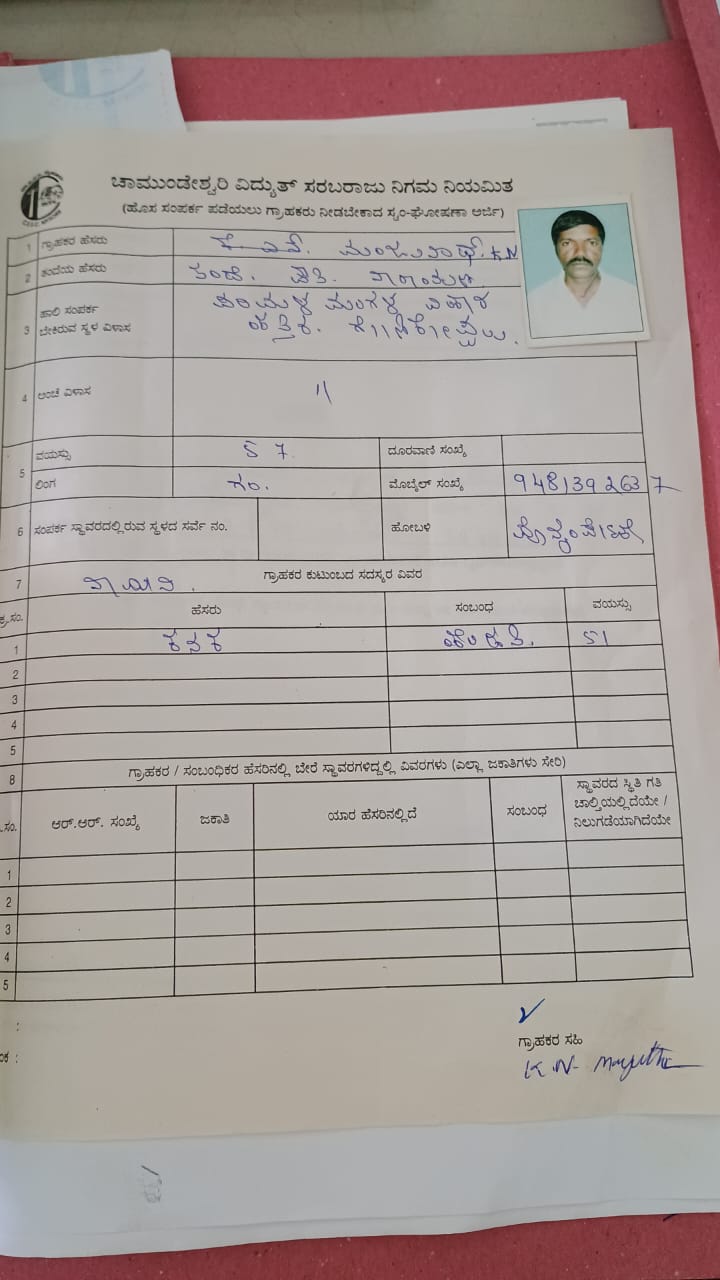 ಚಾಮುಂಡೇಶ್ವರಿ ವಿದ್ಯುತ್ ಸರಬರಾಜು ನಿಗಮ ನಿಯಮಿತ
(ಹೊಸ ಸಂಪರ್ಕ ಪಡೆಯಲು ಗ್ರಾಹಕರು ನೀಡಬೇಕಾದ ಸ್ವಂ-ಘೋಷಣಾ ಅರ್ಜಿ)
1 ಗ್ರಾಹಕರ ಹೆಸರು ಮಂಜುನಾಥ್. K N
2 ತಂದೆಯ ಹೆಸರು ತಂದೆ.
3 ಹಾಲಿ ಸಂಪರ್ಕ ಬೇಕಿರುವ ಸ್ಥಳ ವಿಳಾಸ
ಹತ್ತಿರ. ಗೋಣಿಕೊಪ್ಪಲು.
4 ಅಂಚೆ ವಿಳಾಸ 〃
5 ವಯಸ್ಸು 57 ದೂರವಾಣಿ ಸಂಖ್ಯೆ
ಲಿಂಗ ಗಂ. ಮೊಬೈಲ್ ಸಂಖ್ಯೆ 9481392637
6 ಸಂಪರ್ಕ ಸ್ಥಾವರದಲ್ಲಿರುವ ಸ್ಥಳದ ಸರ್ವೆ ನಂ. ಹೋಬಳಿ ಪೊನ್ನಂಪೇಟೆ
7 ಗ್ರಾಹಕರ ಕುಟುಂಬದ ಸದಸ್ಯರ ವಿವರ
ಕ್ರ.ಸಂ. ಹೆಸರು ಸಂಬಂಧ ವಯಸ್ಸು
1 ಕನಕ ಹೆಂಡತಿ. 51
2
3
4
5
8 ಗ್ರಾಹಕರ / ಸಂಬಂಧಿಕರ ಹೆಸರಿನಲ್ಲಿ ಬೇರೆ ಸ್ಥಾವರಗಳಿದ್ದಲ್ಲಿ ವಿವರಗಳು (ಎಲ್ಲಾ ಜಕಾತಿಗಳು ಸೇರಿ)
.ಸಂ. ಆರ್.ಆರ್. ಸಂಖ್ಯೆ ಜಕಾತಿ ಯಾರ ಹೆಸರಿನಲ್ಲಿದೆ ಸಂಬಂಧ ಸ್ಥಾವರದ ಸ್ಥಿತಿ ಗತಿ ಚಾಲ್ತಿಯಲ್ಲಿದೆಯೇ / ನಿಲುಗಡೆಯಾಗಿದೆಯೇ
1
2
3
4
5
ಗ್ರಾಹಕರ ಸಹಿ
K.N.